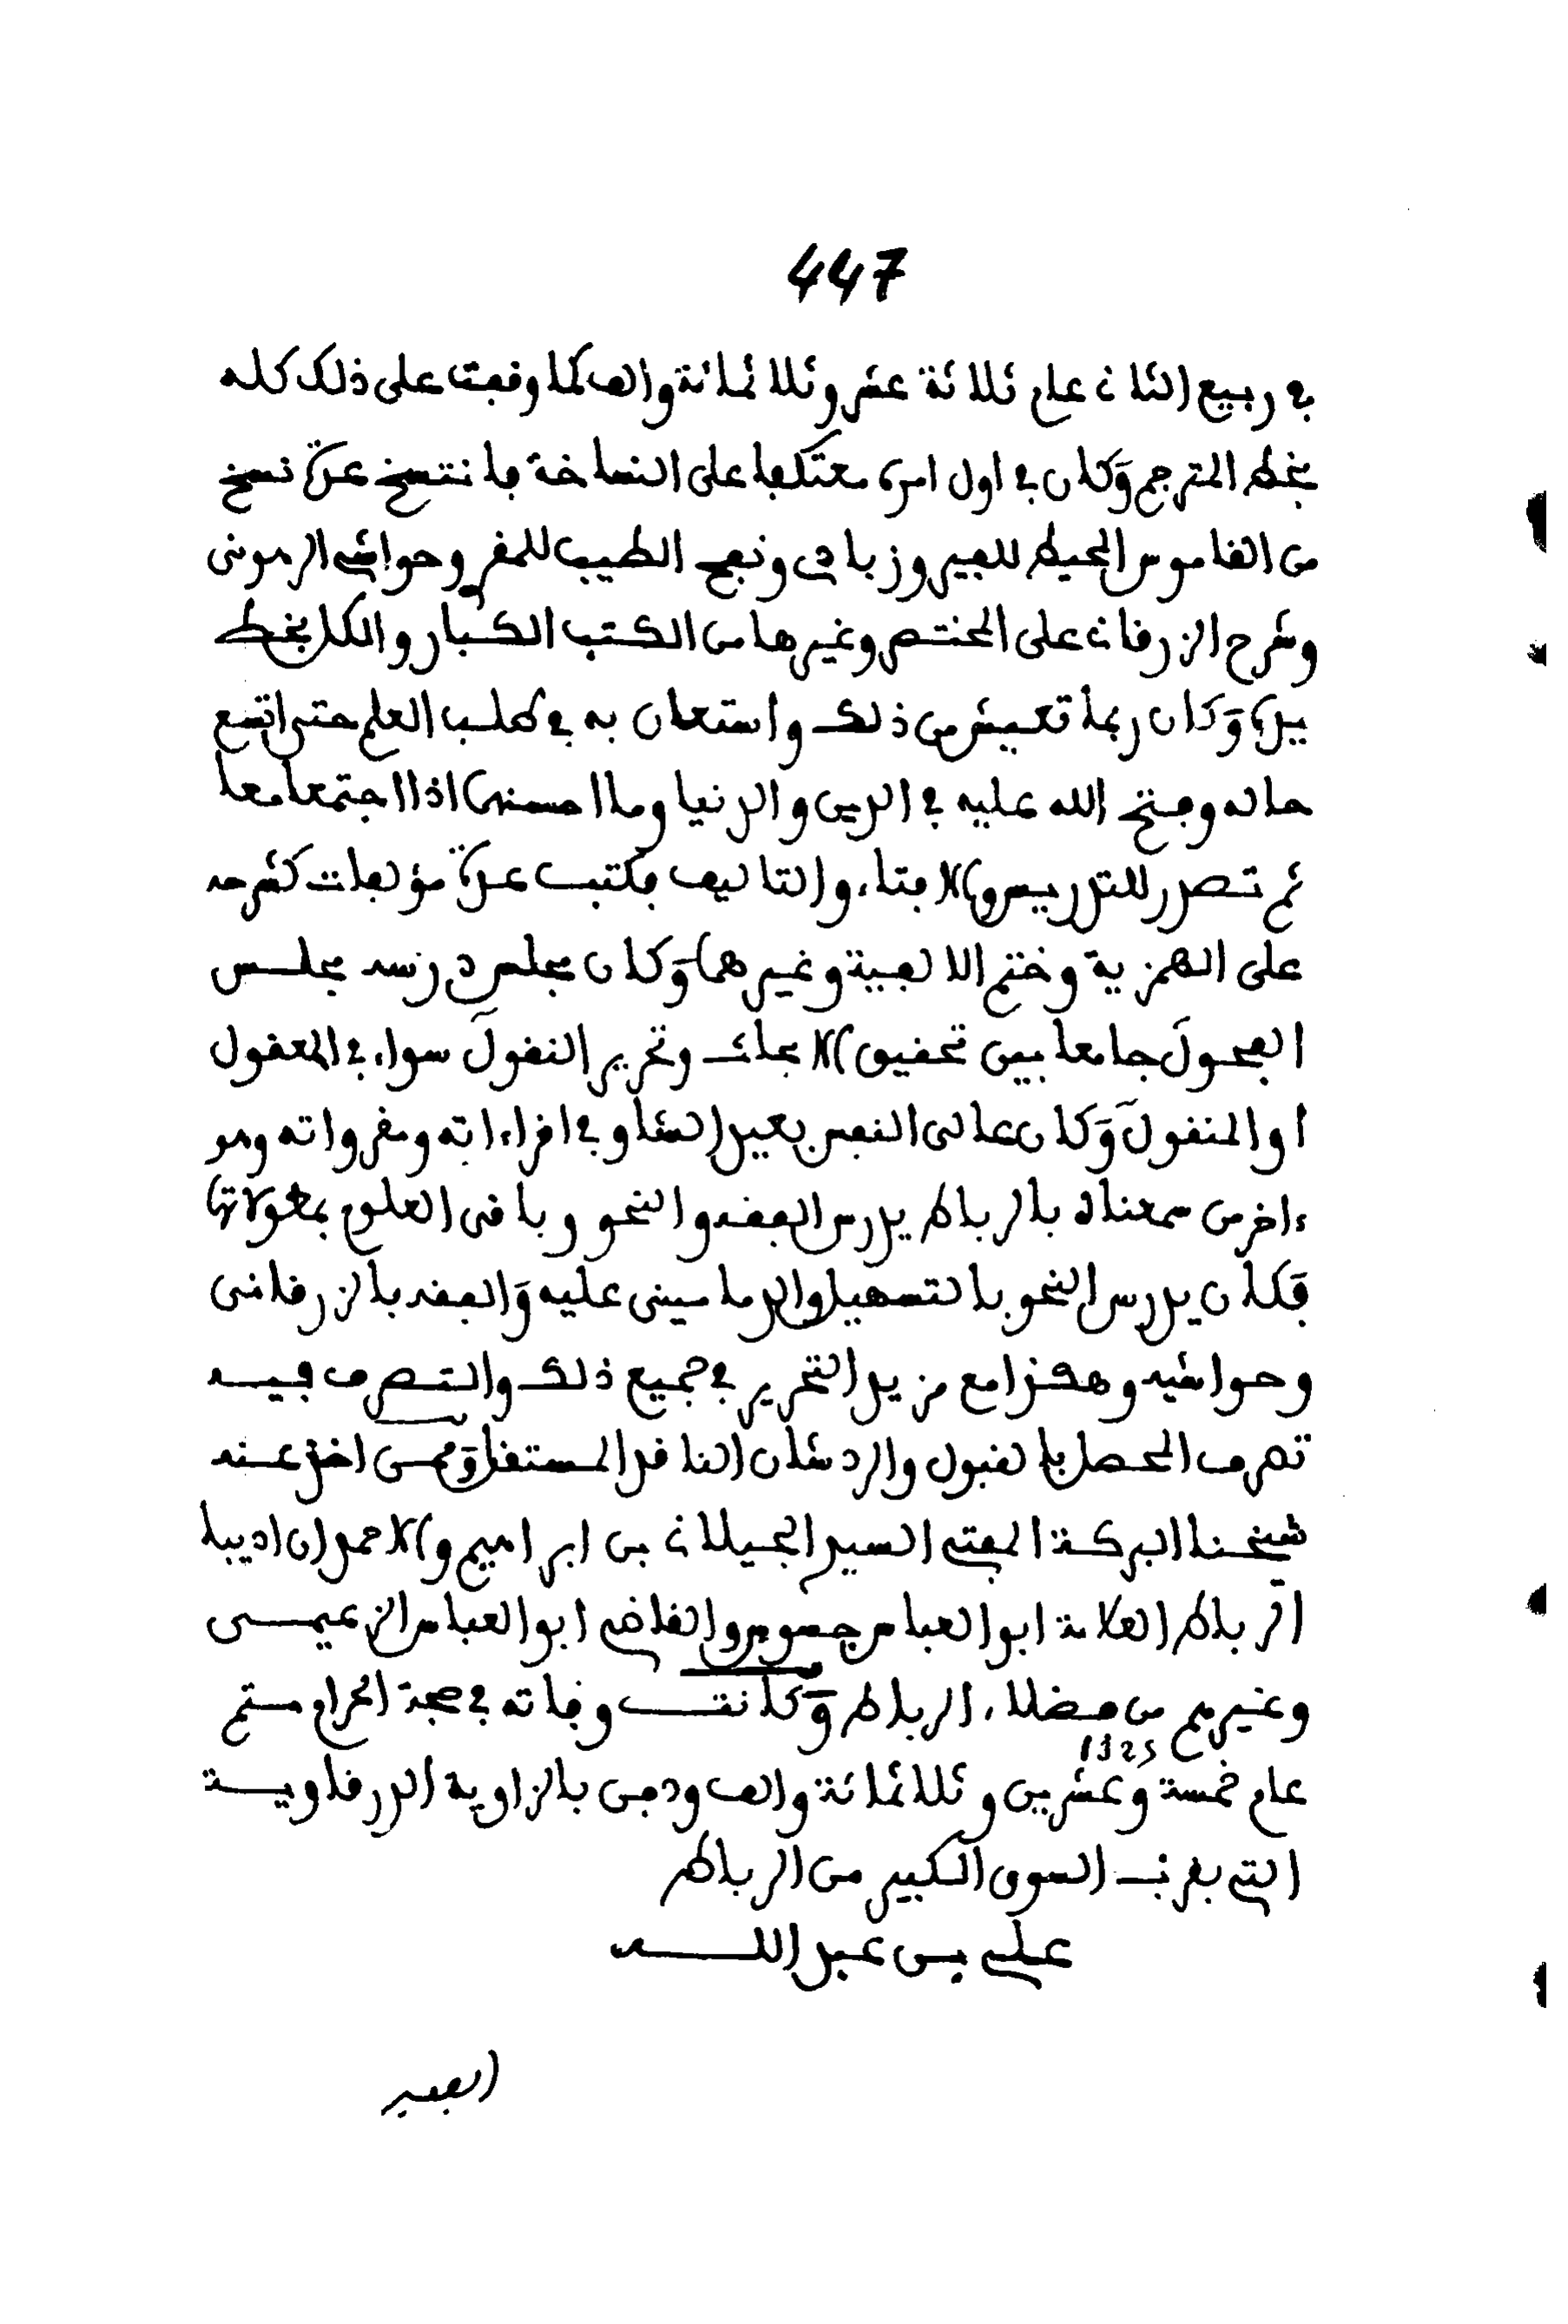 447
في ربيع الثاني عام ثلاثة عشر وثلاثمائة والف كما وقفت على ذلك كله
بخط المترجم وكان في اول امره معتكفا على النساخة فانتسخ عدة نسخ
من القاموس المحيط للفيروزبادي ونفح الطيب للمقري وحواشي الرهوني
وشرح الزرقاني على المختصر وغيرها من الكتب الكبار والكل بخط
يده وكان ربما تعيش من ذلك واستعان به في طلب العلم حتى اتسع
حاله وفتح الله عليه في الدين والدنيا وما احسنهما اذا اجتمعا معا
ثم تصدر للتدريس والافتاء والتاليف فكتب عدة مؤلفات كشرحه
على الهمزية وختم الالفية وغيرهما وكان مجلس درسه مجلس
الفحول جامعا بين تحقيق الابحاث وتحرير النقول سواء في المعقول
او المنقول وكان عالى النفس بعيد الشاو في اقراءاته ومقرواته وهو
ءاخر من سمعناه بالرباط يدرس الفقه والنحو وباقى العلوم بمطولاتها
فكان يدرس النحو بالتسهيل والدمامينى عليه والفقه بالزرقانى
وحواشيه وهكذا مع مزيد التحرير في جميع ذلك والتصرف فيه
تصرف المحصل بالقبول والرد شان الناقد المستقل وممن اخذ عنه
شيخنا البركة المفتي السيد الجيلاني بن ابراهيم والاحمدان اديبا
الرباط العلامة ابو العباس جسوس والقاضي ابو العباس الزعيمى
وغيرهم من فضلاء الرباط وكانت وفاته في حجة الحرام متم
1325
عام خمسة وعشرين وثلاثمائة والف ودفن بالزاوية الدرقاوية
التي بقرب السوق الكبير من الرباط
علي بن عبد الله
الفقير